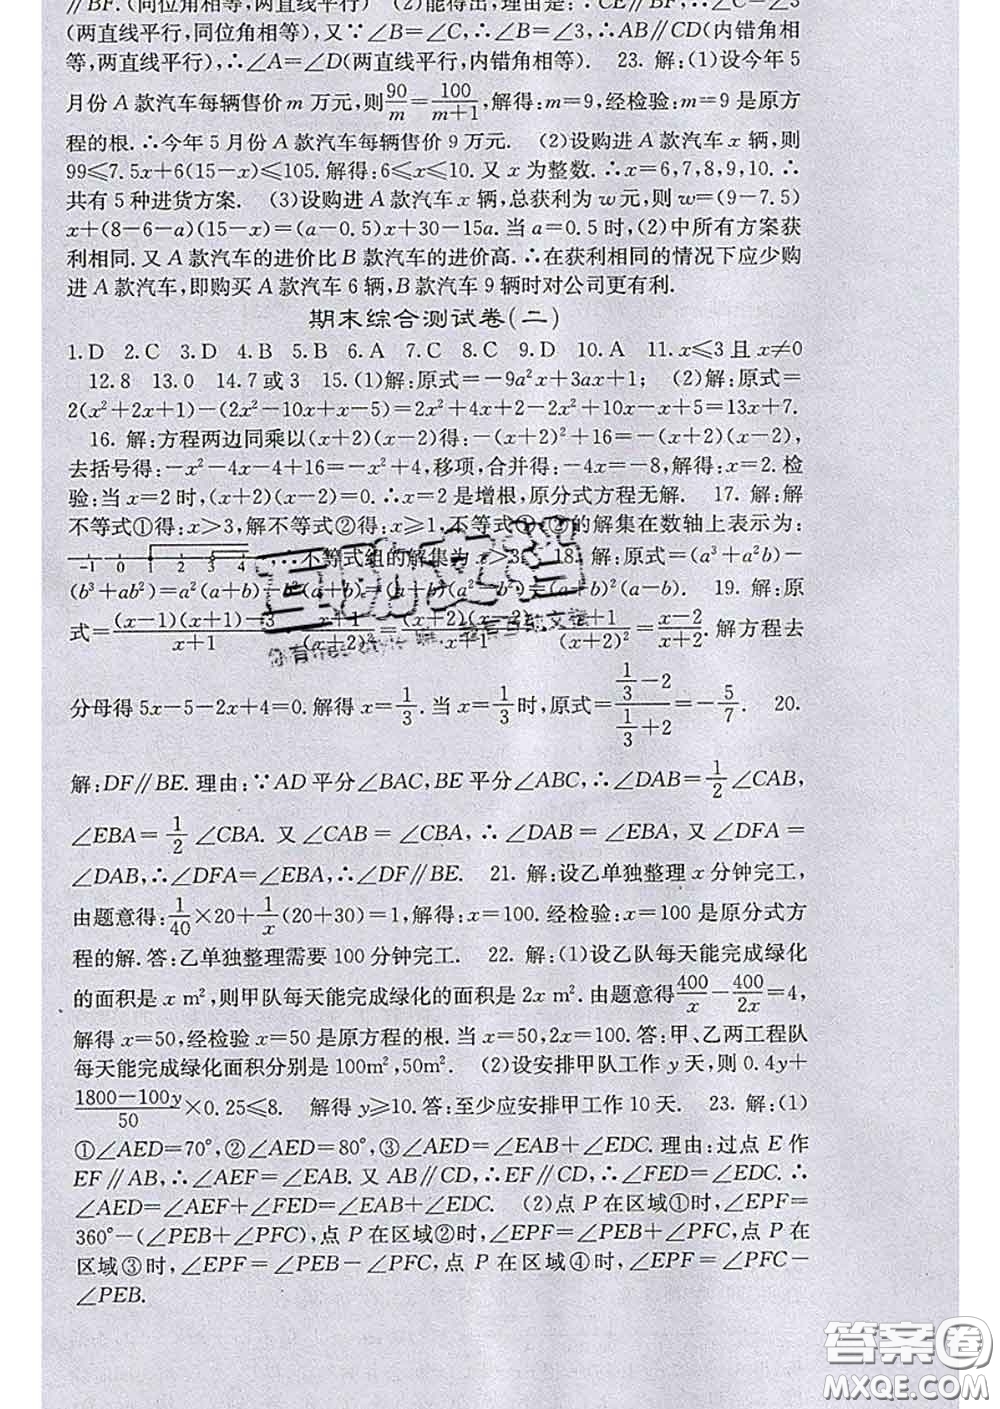 ∥BF. (同位角相等,两直线平行) (2)能得出,理由是:∵CE∥BF,∴∠C=∠3
(两直线平行,同位角相等),又∵∠B=∠C,∴∠B=∠3,∴AB∥CD(内错角相
等,两直线平行),∴∠A=∠D(两直线平行,内错角相等). 23. 解:(1)设今年5
月份A款汽车每辆售价m万元,则90/m=100/(m+1),解得:m=9,经检验:m=9是原方
程的根.∴今年5月份A款汽车每辆售价9万元. (2)设购进A款汽车x辆,则
99≤7.5x+6(15-x)≤105.解得:6≤x≤10.又x为整数.∴x=6,7,8,9,10.∴
共有5种进货方案. (3)设购进A款汽车x辆,总获利为w元,则w=(9-7.5)
x+(8-6-a)(15-x)=(a-0.5)x+30-15a.当a=0.5时,(2)中所有方案获
利相同.又A款汽车的进价比B款汽车的进价高.∴在获利相同的情况下应少购
进A款汽车,即购买A款汽车6辆,B款汽车9辆时对公司更有利.
期末综合测试卷(二)
1.D 2.C 3.D 4.B 5.B 6.A 7.C 8.C 9.D 10.A 11.x≤3且x≠0
12.8 13.0 14.7或3 15.(1)解:原式=-9a²x+3ax+1; (2)解:原式=
2(x²+2x+1)-(2x²-10x+x-5)=2x²+4x+2-2x²+10x-x+5=13x+7.
16. 解:方程两边同乘以(x+2)(x-2)得:-(x+2)²+16=-(x+2)(x-2),
去括号得:-x²-4x-4+16=-x²+4,移项,合并得:-4x=-8,解得:x=2.检
验:当x=2时,(x+2)(x-2)=0.∴x=2是增根,原分式方程无解. 17. 解:解
不等式①得:x>3,解不等式②得:x≥1,不等式①、②的解集在数轴上表示为:
-1 0 1 2 3 4 ∴不等式组的解集为x>3. 18. 解:原式=(a³+a²b)-
(b³+ab²)=a²(a+b)-b²(a+b)=(a+b)(a²-b²)=(a+b)²(a-b). 19. 解:原
式=((x-1)(x+1)-3)/(x+1) · (x+1)/(x+2)²=(x+2)(x-2)/(x+1) · (x+1)/(x+2)²=(x-2)/(x+2).解方程去
分母得5x-5-2x+4=0.解得x=1/3.当x=1/3时,原式=(1/3-2)/(1/3+2)=-5/7. 20.
解:DF∥BE.理由:∵AD平分∠BAC,BE平分∠ABC,∴∠DAB=1/2∠CAB,
∠EBA=1/2∠CBA.又∠CAB=∠CBA,∴∠DAB=∠EBA,又∠DFA=
∠DAB,∴∠DFA=∠EBA,∴∠DF∥BE. 21. 解:设乙单独整理x分钟完工,
由题意得:1/40×20+1/x(20+30)=1,解得:x=100.经检验:x=100是原分式方
程的解.答:乙单独整理需要100分钟完工. 22. 解:(1)设乙队每天能完成绿化
的面积是x m²,则甲队每天能完成绿化的面积是2x m².由题意得400/x-400/2x=4,
解得x=50,经检验x=50是原方程的根.当x=50,2x=100.答:甲、乙两工程队
每天能完成绿化面积分别是100m²,50m². (2)设安排甲队工作y天,则0.4y+
(1800-100y)/50×0.25≤8. 解得y≥10.答:至少应安排甲工作10天. 23. 解:(1)
①∠AED=70°,②∠AED=80°,③∠AED=∠EAB+∠EDC.理由:过点E作
EF∥AB,∴∠AEF=∠EAB.又AB∥CD,∴EF∥CD,∴∠FED=∠EDC.∴
∠AED=∠AEF+∠FED=∠EAB+∠EDC. (2)点P在区域①时,∠EPF=
360°-(∠PEB+∠PFC),点P在区域②时,∠EPF=∠PEB+∠PFC,点P在
区域③时,∠EPF=∠PEB-∠PFC,点P在区域④时,∠EPF=∠PFC-
∠PEB.
答案卷
MXQE.COM